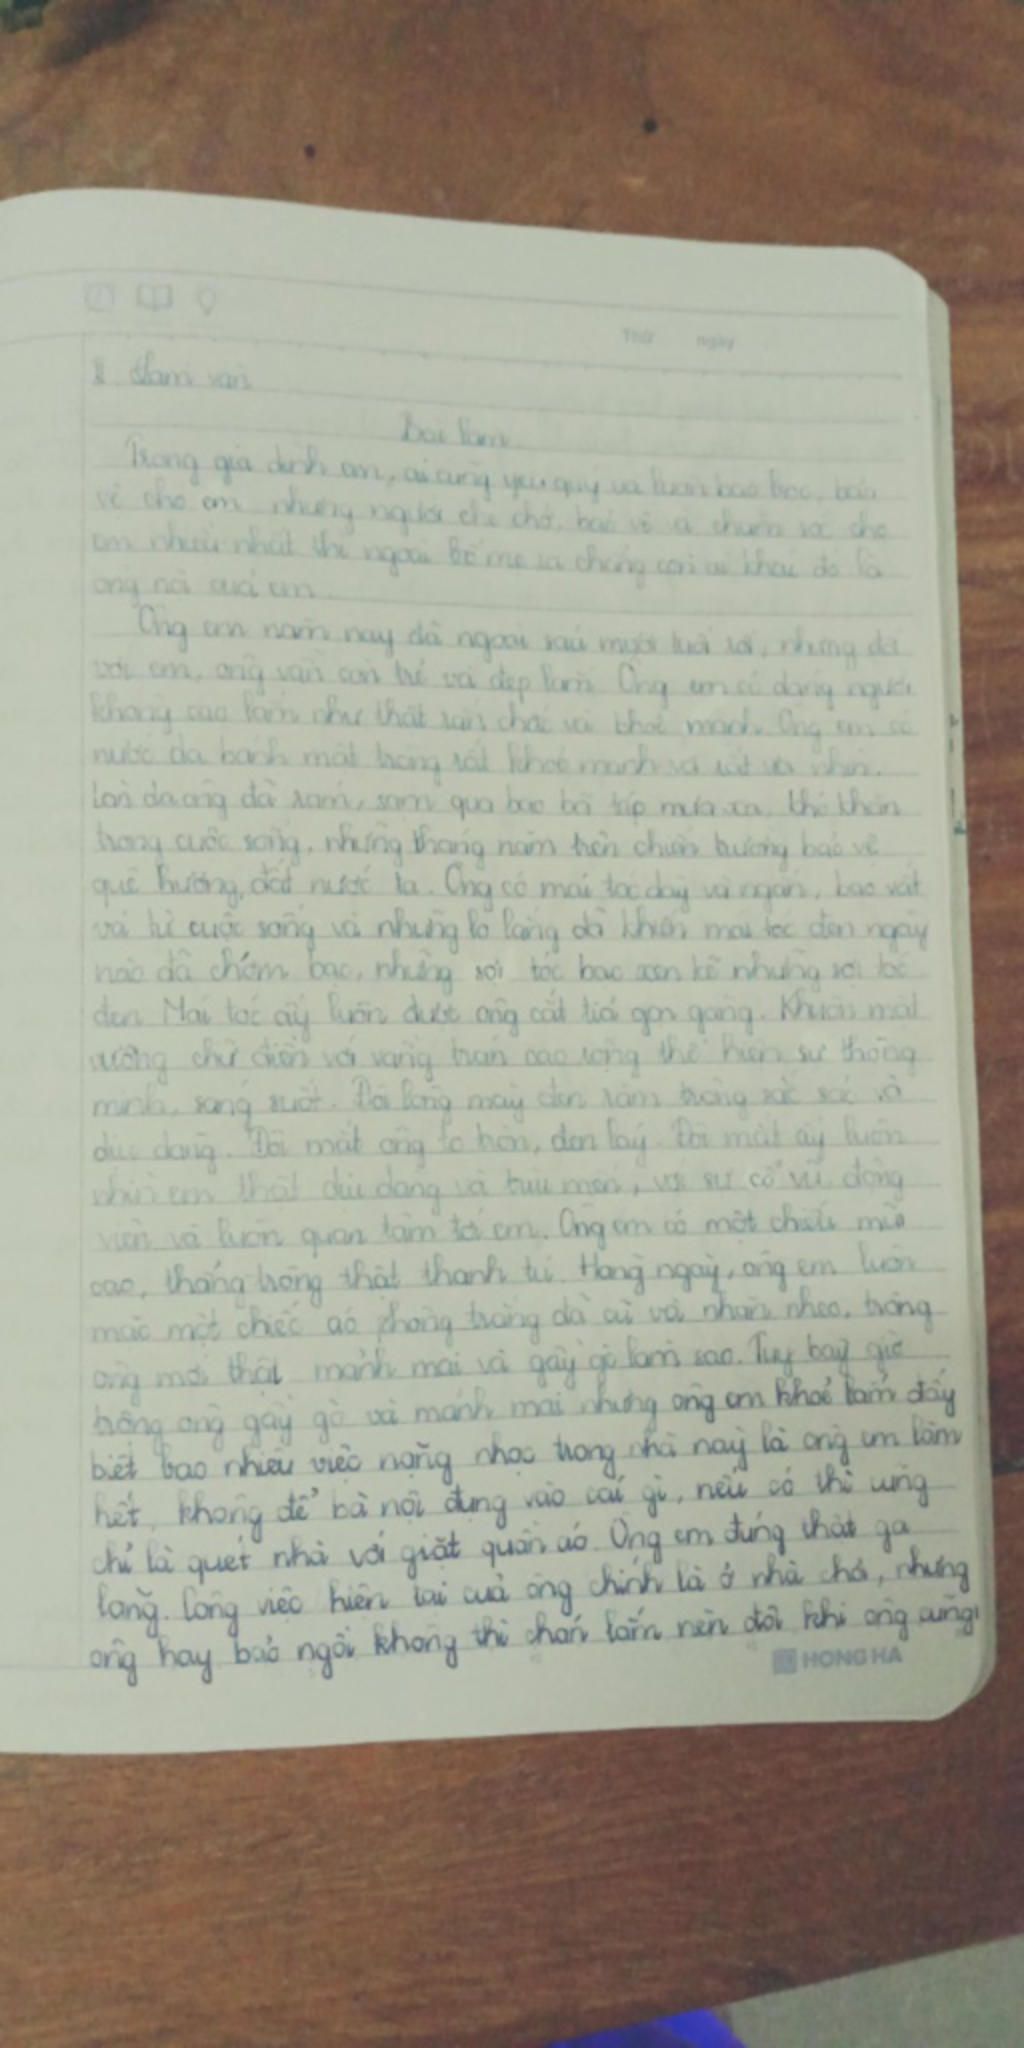 Thứ ngày
II Làm văn
Bài làm
Trong gia đình em, ai cũng yêu quý và luôn bao bọc, bảo
vệ cho em nhưng người che chở, bảo vệ và chăm sóc cho
em nhiều nhất thì ngoài bố mẹ ra chẳng còn ai khác đó là
ông nội của em.
Ông em năm nay đã ngoài sáu mươi tuổi rồi, nhưng đối
với em, ông vẫn còn trẻ và đẹp lắm. Ông em có dáng người
không cao lắm như thật săn chắc và khoẻ mạnh. Ông em có
nước da bánh mật trông rất khoẻ mạnh và rất ưa nhìn.
Làn da ông đã sạm, sạm qua bao bão táp mưa sa, khó khăn
trong cuộc sống, những tháng năm trên chiến trường bảo vệ
quê hương, đất nước ta. Ông có mái tóc dày và ngắn, bao vất
vả từ cuộc sống và những lo lắng đã khiến mái tóc đen ngày
nào đã chớm bạc, những sợi tóc bạc xen kẽ những sợi tóc
đen. Mái tóc ấy luôn được ông cắt tỉa gọn gàng. Khuôn mặt
vuông chữ điền với vầng trán cao rộng thể hiện sự thông
minh, sáng suốt. Đôi lông mày đen rậm trông sắc sảo và
dịu dàng. Đôi mắt ông to tròn, đen láy. Đôi mắt ấy luôn
nhìn em thật dịu dàng và trìu mến, với sự cổ vũ, động
viên và luôn quan tâm tới em. Ông em có một chiếc mũi
cao, thẳng trông thật thanh tú. Hàng ngày, ông em luôn
mặc một chiếc áo phông trắng đã cũ và nhăn nheo, trông
ông mới thật mảnh mai và gầy gò làm sao. Tuy bây giờ
trông ông gầy gò và mảnh mai nhưng ông em khoẻ lắm đấy
biết bao nhiêu việc nặng nhọc trong nhà này là ông em làm
hết, không để bà nội đụng vào cái gì, nếu có thì cũng
chỉ là quét nhà với giặt quần áo. Ông em đúng thật ga
lăng. Công việc hiện tại của ông chính là ở nhà chơi, nhưng
ông hay bảo ngồi không thì chán lắm nên đôi khi ông cũng
HONG HA